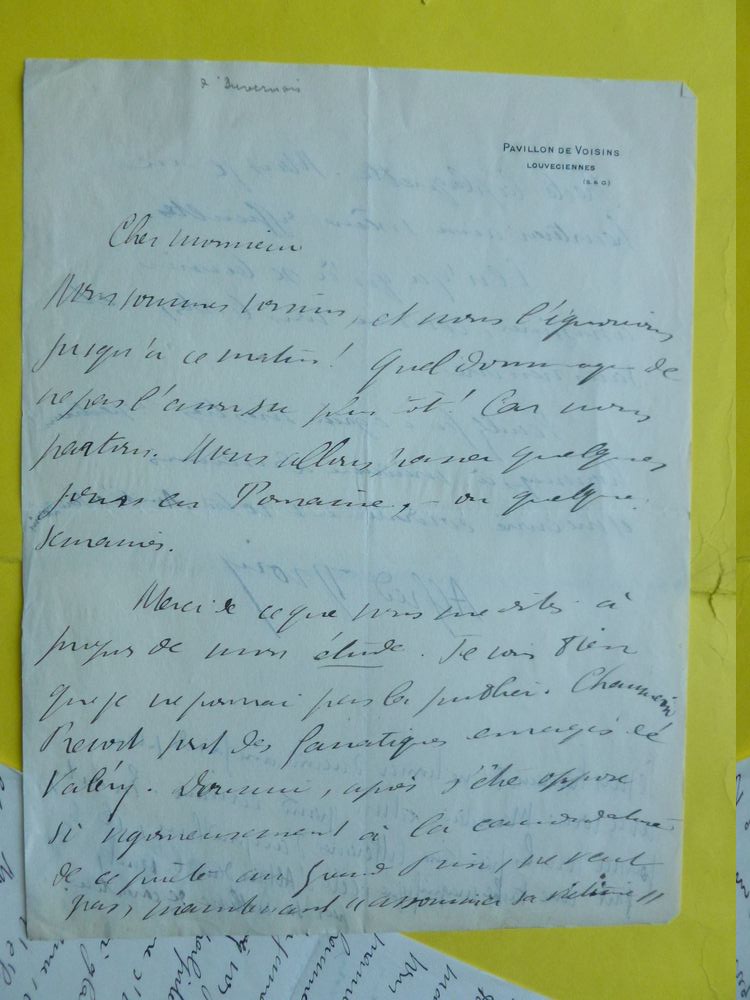 d'Duvernois
PAVILLON DE VOISINS
LOUVECIENNES
(S & O)
Cher monsieur
Nous sommes voisins, et nous l'ignorions
jusqu'à ce matin! Quel dommage de
ne pas l'avoir su plus tôt! Car nous
partons. Nous allons passer quelques
jours en Touraine, – ou quelques
semaines.
Merci de ce que vous me dites à
propos de mon étude. Je vois bien
que je ne pourrai pas la publier. Chaumeix,
Prevost sont des fanatiques enragés de
Valéry. Doumic, après s'être opposé
si rigoureusement à la candidature
de ce poète au Grand Prix, ne veut
pas, maintenant assommer sa victime!!